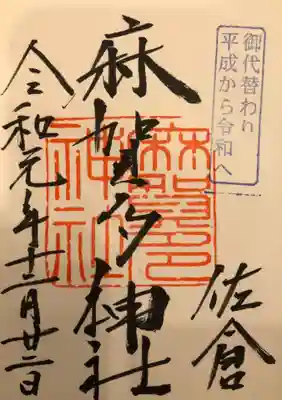 御代替わり
平成から令和へ
佐倉
麻賀多神社
令和元年十二月廿二日
麻賀多神社